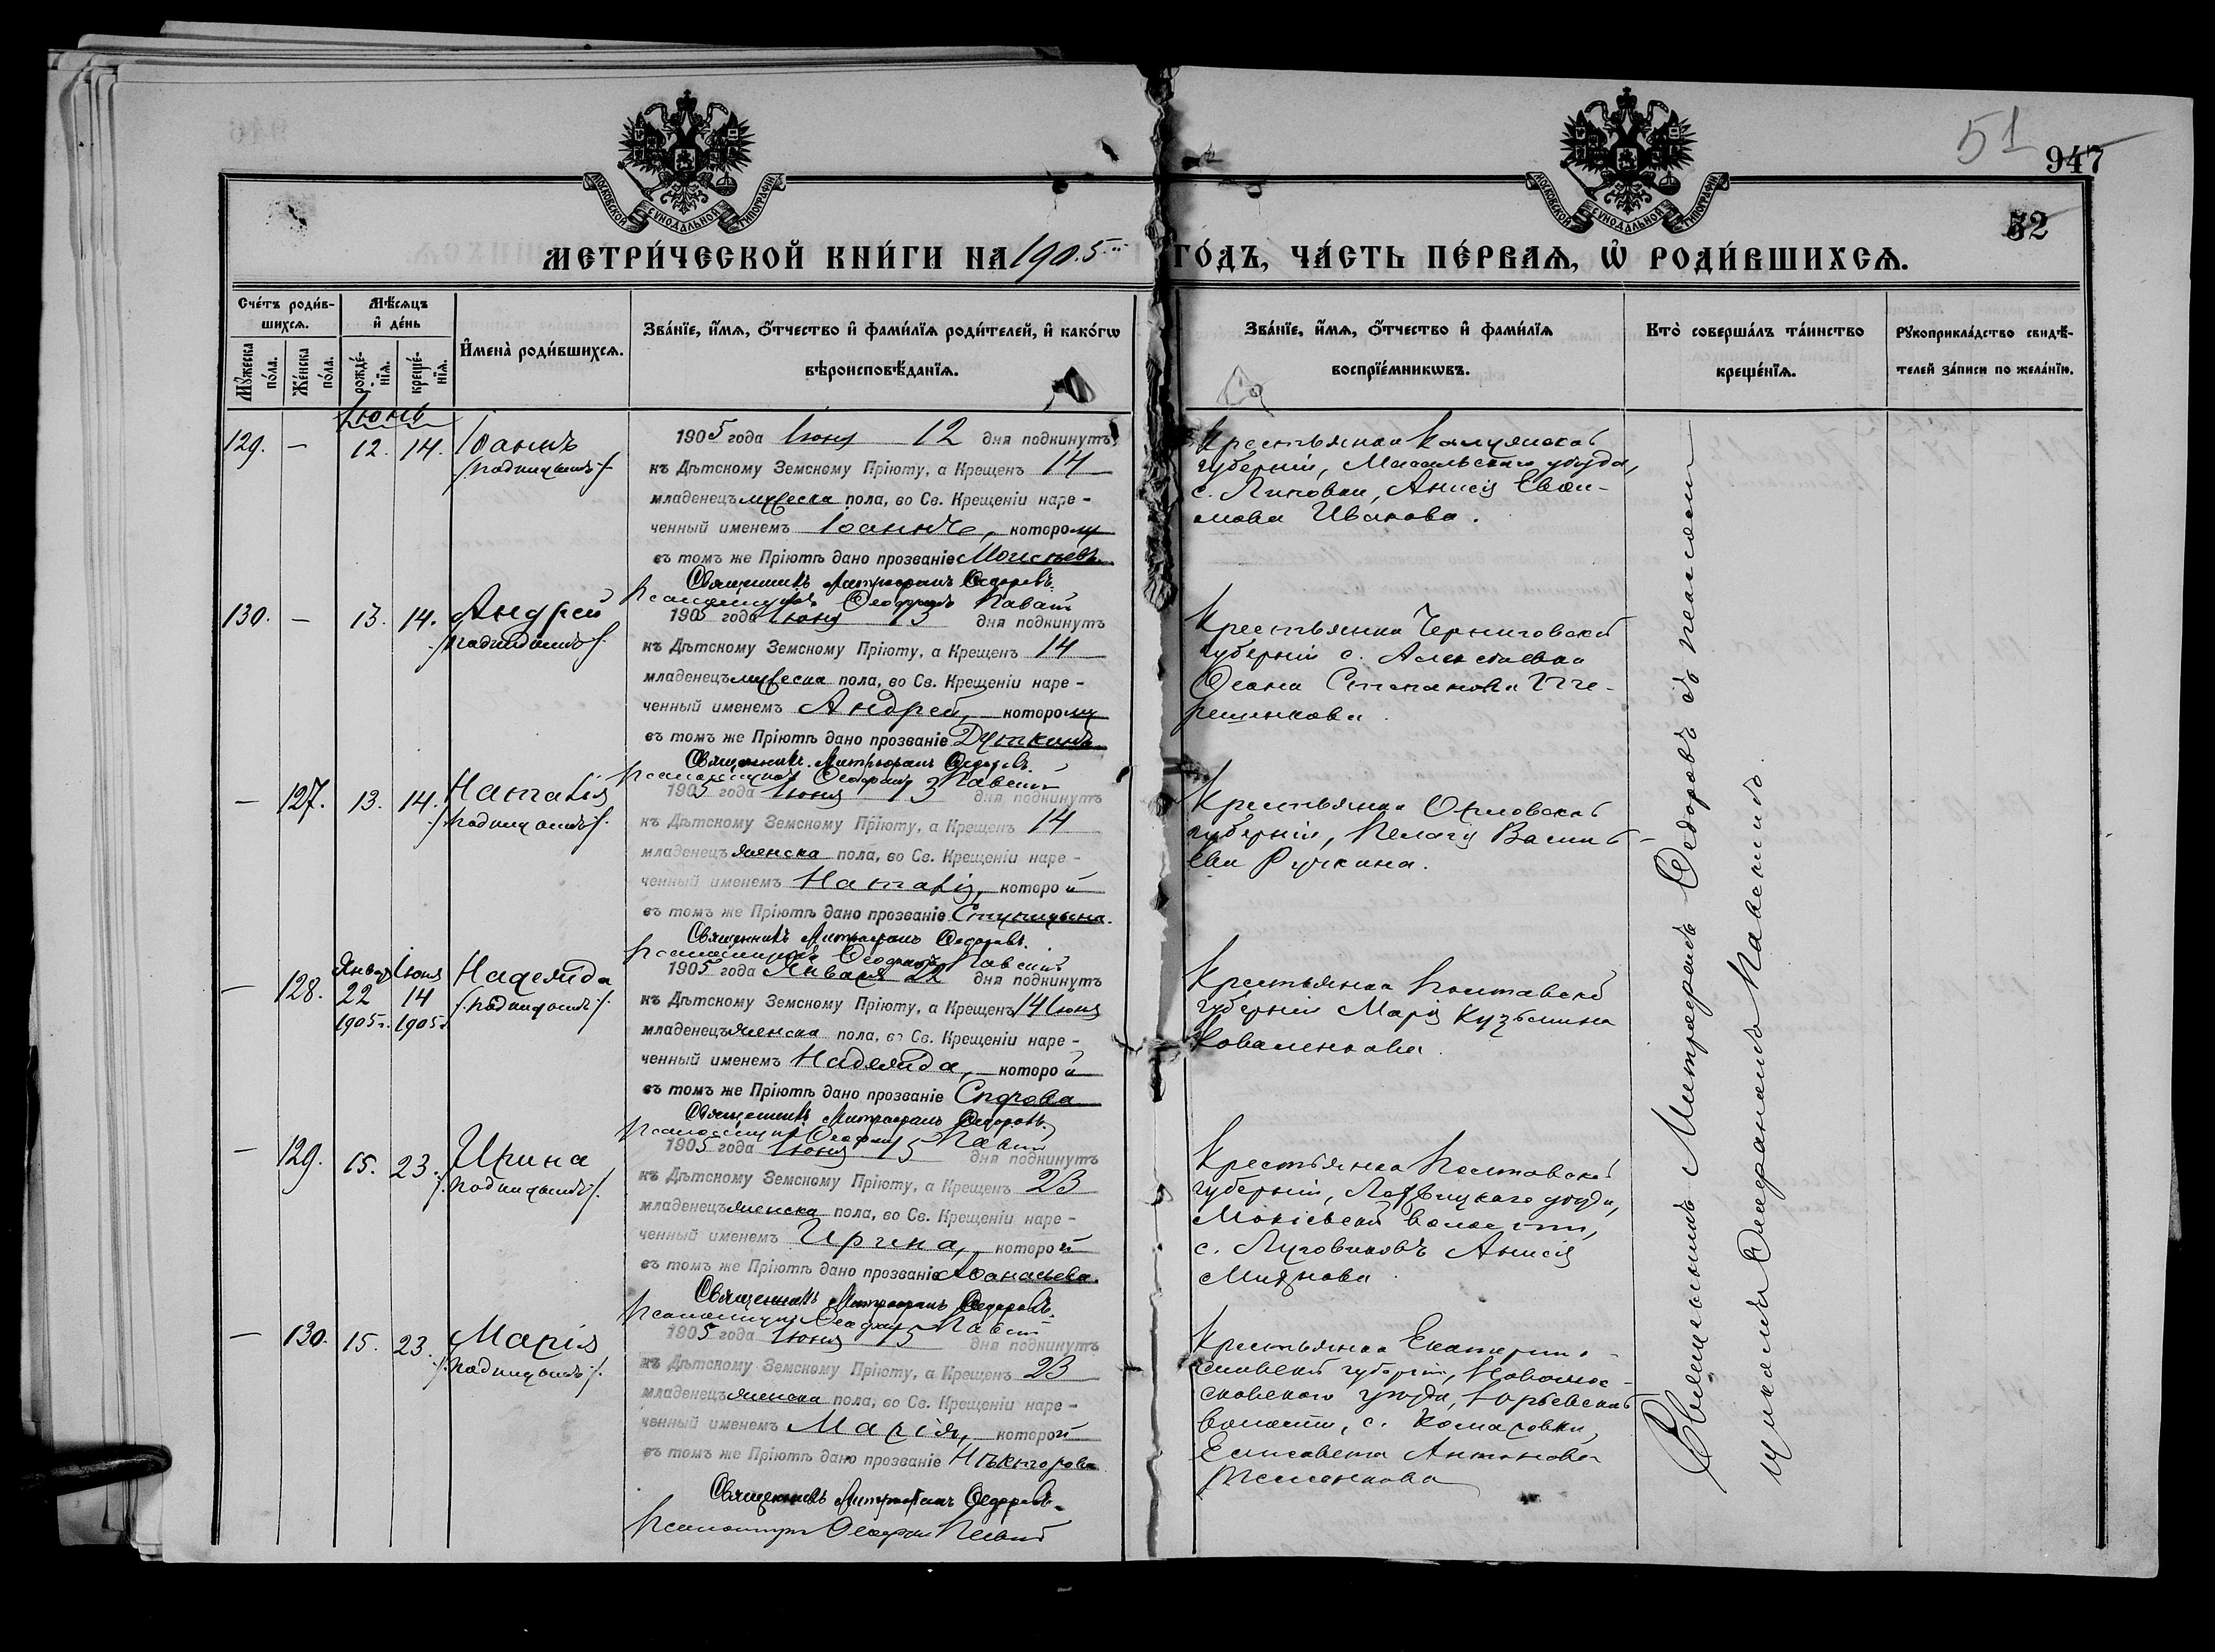 51
947
32
МОСКОВСКОЙ СѴНОДАЛЬНОЙ ТИПОГРАФІИ
МОСКОВСКОЙ СѴНОДАЛЬНОЙ ТИПОГРАФІИ
МЕТРИ́ЧЕСКОЙ КНИ́ГИ НА 1905 ГО́ДЪ, ЧА́СТЬ ПЕ́РВАѦ, Ѽ РОДИ́ВШИХСѦ.
Сче́тъ роди́вшихсѧ.
Мꙋ́жеска по́ла.
Же́нска по́ла.
Мѣ́сѧцъ и҆ де́нь
рожде́нїѧ.
креще́нїѧ.
И҆мена̀ роди́вшихсѧ.
Зва́нїе, и҆́мѧ, ѻ҆́тчество и҆ фами́лїѧ роди́телей, и҆ како́гѡ
вѣроисповѣ́данїѧ.
Зва́нїе, и҆́мѧ, ѻ҆́тчество и҆ фами́лїѧ
воспрїе́мникѡвъ.
Кто̀ соверша́лъ та́инство
креще́нїѧ.
Рꙋкоприкла́дство свидѣ́-
телей за́писи по жела́нїю.
Іюнь
129. — 12. 14. Іоаннъ
/:подкидышъ:/
1905 года Іюня 12 дня подкинутъ
къ Дѣтскому Земскому Пріюту, а Крещенъ 14
младенецъ мужеска пола, во Св. Крещеніи наре-
ченный именемъ Іоаннъ, которому
въ томъ же Пріютѣ дано прозваніе Моисѣевъ.
Священникъ Митрофанъ Ѳедоровъ.
Псаломщикъ Ѳеофанъ
Крестьянка Калужской
губерніи, Масальскаго уѣзда,
с. Липовки, Анисія Евѳи-
мова Иванова.
130. — 13. 14. Андрей
/:подкидышъ:/
1905 года Іюня 13 дня подкинутъ
къ Дѣтскому Земскому Пріюту, а Крещенъ 14
младенецъ мужеска пола, во Св. Крещеніи наре-
ченный именемъ Андрей, которому
въ томъ же Пріютѣ дано прозваніе Дуткинъ
Священникъ Митрофанъ Ѳедоровъ.
Псаломщикъ Ѳеофанъ
Крестьянка Черниговской
губерніи с. Алексѣевки
Степанова
— 127. 13. 14. Наталія
/:подкидышъ:/
1905 года Іюня 13 дня подкинутъ
къ Дѣтскому Земскому Пріюту, а Крещенъ 14
младенецъ женска пола, во Св. Крещеніи наре-
ченный именемъ Наталія, которой
въ томъ же Пріютѣ дано прозваніе Ступицына.
Священникъ Митрофанъ Ѳедоровъ.
Псаломщикъ Ѳеофанъ
Крестьянка Орловской
губерніи, Пелагія Василь-
ева Ручкина.
— 128. Январ 22 1905г. Іюня 14 1905г. Надежда
/:подкидышъ:/
1905 года Января 22 дня подкинутъ
къ Дѣтскому Земскому Пріюту, а Крещенъ 14 Іюня
младенецъ женска пола, во Св. Крещеніи наре-
ченный именемъ Надежда, которой
въ томъ же Пріютѣ дано прозваніе
Священникъ Митрофанъ Ѳедоровъ.
Псаломщикъ Ѳеофанъ
Крестьянка Полтавской
губерніи Марія Кузьмина
Коваленкова.
— 129. 15. 23. Ирина
/:подкидышъ:/
1905 года Іюня 15 дня подкинутъ
къ Дѣтскому Земскому Пріюту, а Крещенъ 23
младенецъ женска пола, во Св. Крещеніи наре-
ченный именемъ Ирина, которой
въ томъ же Пріютѣ дано прозваніе Аѳанасьева.
Священникъ Митрофанъ Ѳедоровъ.
Псаломщикъ Ѳеофанъ
Крестьянка Полтавской
губерніи, Лохвицкаго уѣзда,
волости,
с. Луговиковъ Анисія
— 130. 15. 23. Марія
/:подкидышъ:/
1905 года Іюня 15 дня подкинутъ
къ Дѣтскому Земскому Пріюту, а Крещенъ 23
младенецъ женска пола, во Св. Крещеніи наре-
ченный именемъ Марія, которой
въ томъ же Пріютѣ дано прозваніе
Священникъ Митрофанъ Ѳедоровъ.
Псаломщикъ Ѳеофанъ
Крестьянка Екатерино-
славской губерніи, Новомос-
ковскаго уѣзда, Юрьевской
волости, с. Комаровки,
Елисавета Антонова
Священникъ Митрофанъ Ѳедоровъ съ псаломщикомъ Ѳеофаномъ